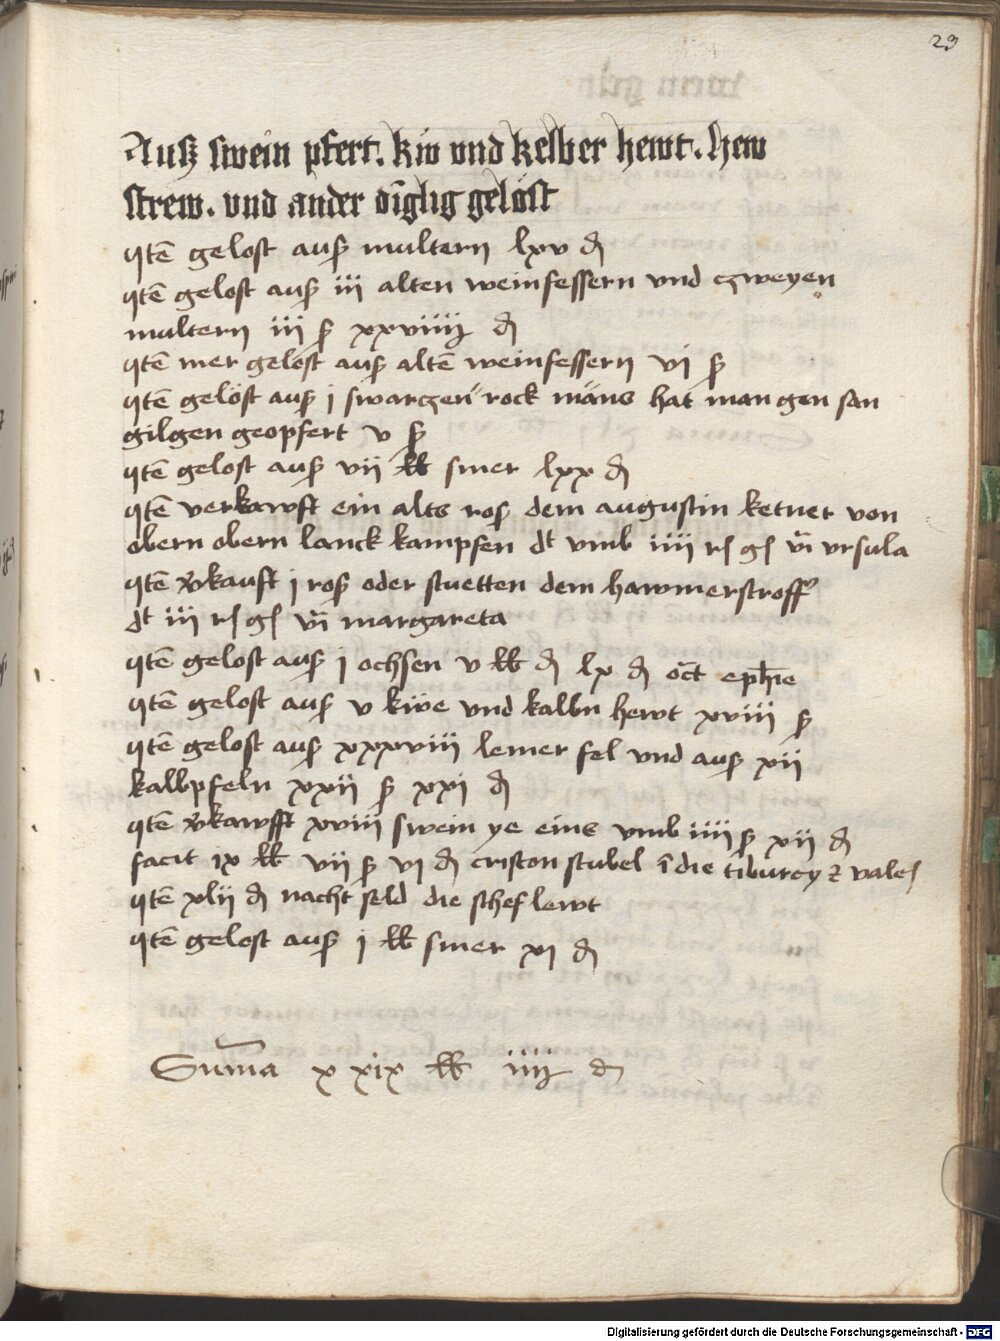 29
Ausz swein pfert. kw vnd kelber hewt. hew
strew. vnd ander dinglig gelöst
Itē gelost ausz multern lxv ₰
Itē gelost ausz iii alten weinfessern vnd czweyen
multern iii ß xxviiii ₰
Itē mer gelöst ausz altē weinfessern vi ß
Itē gelöst ausz i swarczen rock mans hat man gen san
gilgen geopfert v ß
Itē gelost ausz vii lb smer lxx ₰
Itē verkawft ein alts ros dem augustin ketner von
obern obern lanck kampfen dt vmb iiii rh gl vī vrsula
Itē v̄kauft i rosz oder stuetten dem hawmerstroff
dt iii rh gl vī margareta
Itē gelost ausz i ochsen v lb ₰ lx ₰ oct ephie
Itē gelost ausz v küe vnd kalbn hewt xviii ß
Itē gelost ausz xxxviii lemer fel vnd ausz xii
kalbpfeln xxii ß xxi ₰
Itē v̄kawfft xviii swein ye eins vmb iiii ß xii ₰
facit ix lb vii ß vi ₰ criston stubel ī die tiburcy et vale
Itē xlii ₰ nacht seld die schef lewt
Itē gelost ausz i lb smer xi ₰
Suma xxix lb iiii ₰
Digitalisierung gefördert durch die Deutsche Forschungsgemeinschaft - DFG